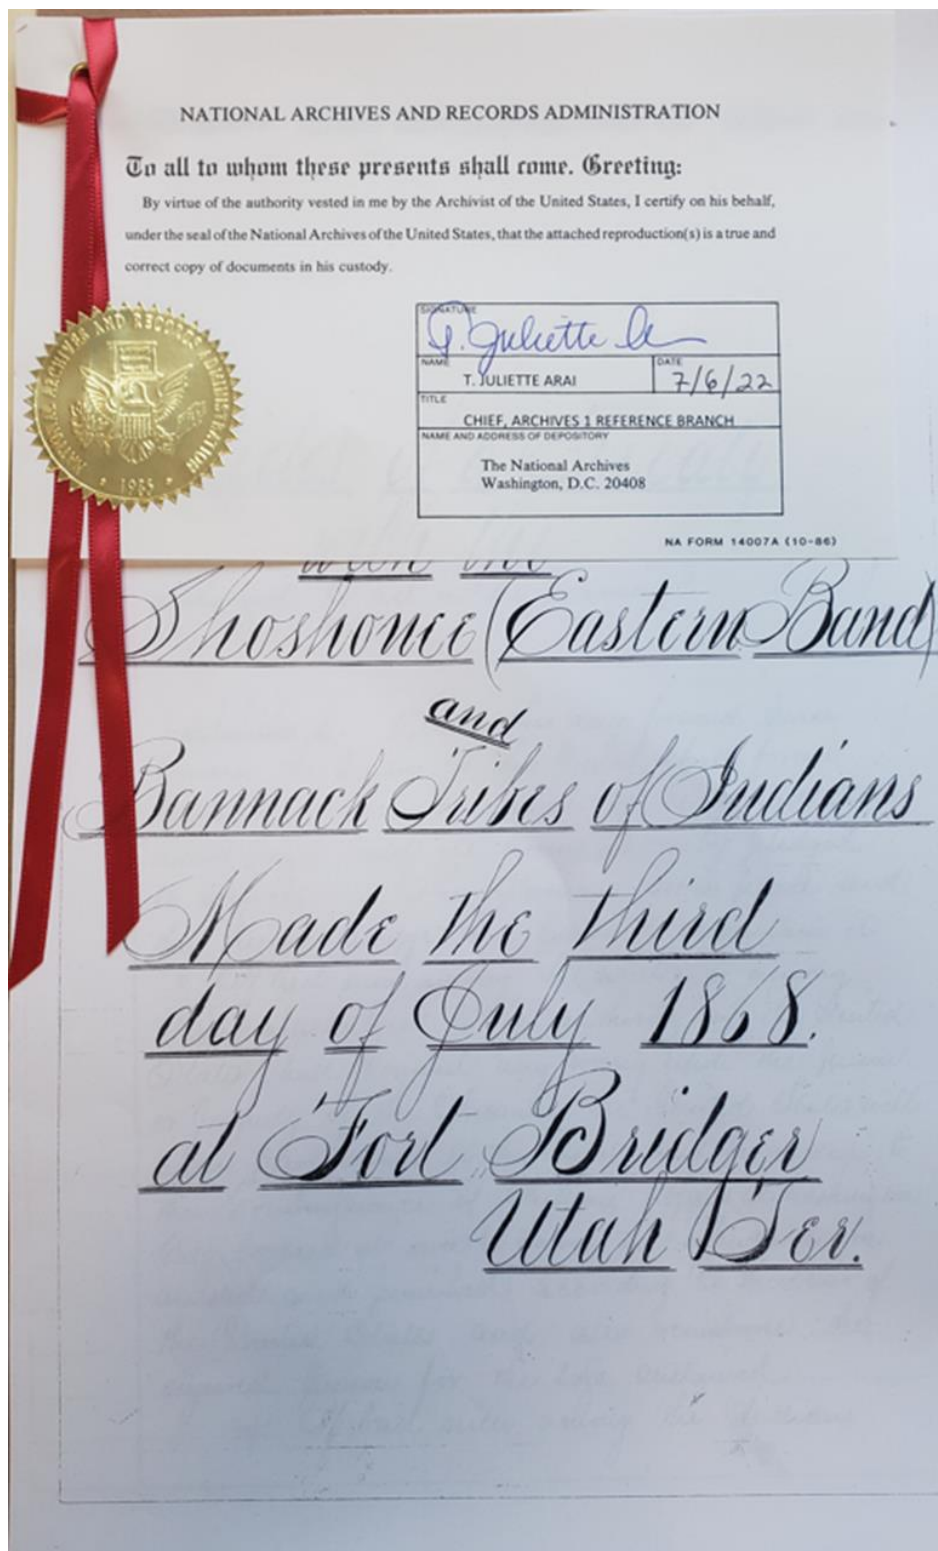 NATIONAL ARCHIVES AND RECORDS ADMINISTRATION
To all to whom these presents shall come. Greeting:
By virtue of the authority vested in me by the Archivist of the United States, I certify on his behalf,
under the seal of the National Archives of the United States, that the attached reproduction(s) is a true and
correct copy of documents in his custody.
SIGNATURE
T. Juliette
NAME
T. JULIETTE ARAI
DATE
7/6/22
TITLE
CHIEF, ARCHIVES 1 REFERENCE BRANCH
NAME AND ADDRESS OF DEPOSITORY
The National Archives
Washington, D.C. 20408
NATIONAL ARCHIVES AND RECORDS ADMINISTRATION
1985
NA FORM 14007A (10-86)
with the
Shoshonee (Eastern Band)
and
Bannack Tribes of Indians
Made the third
day of July 1868.
at Fort Bridger
Utah Ter.